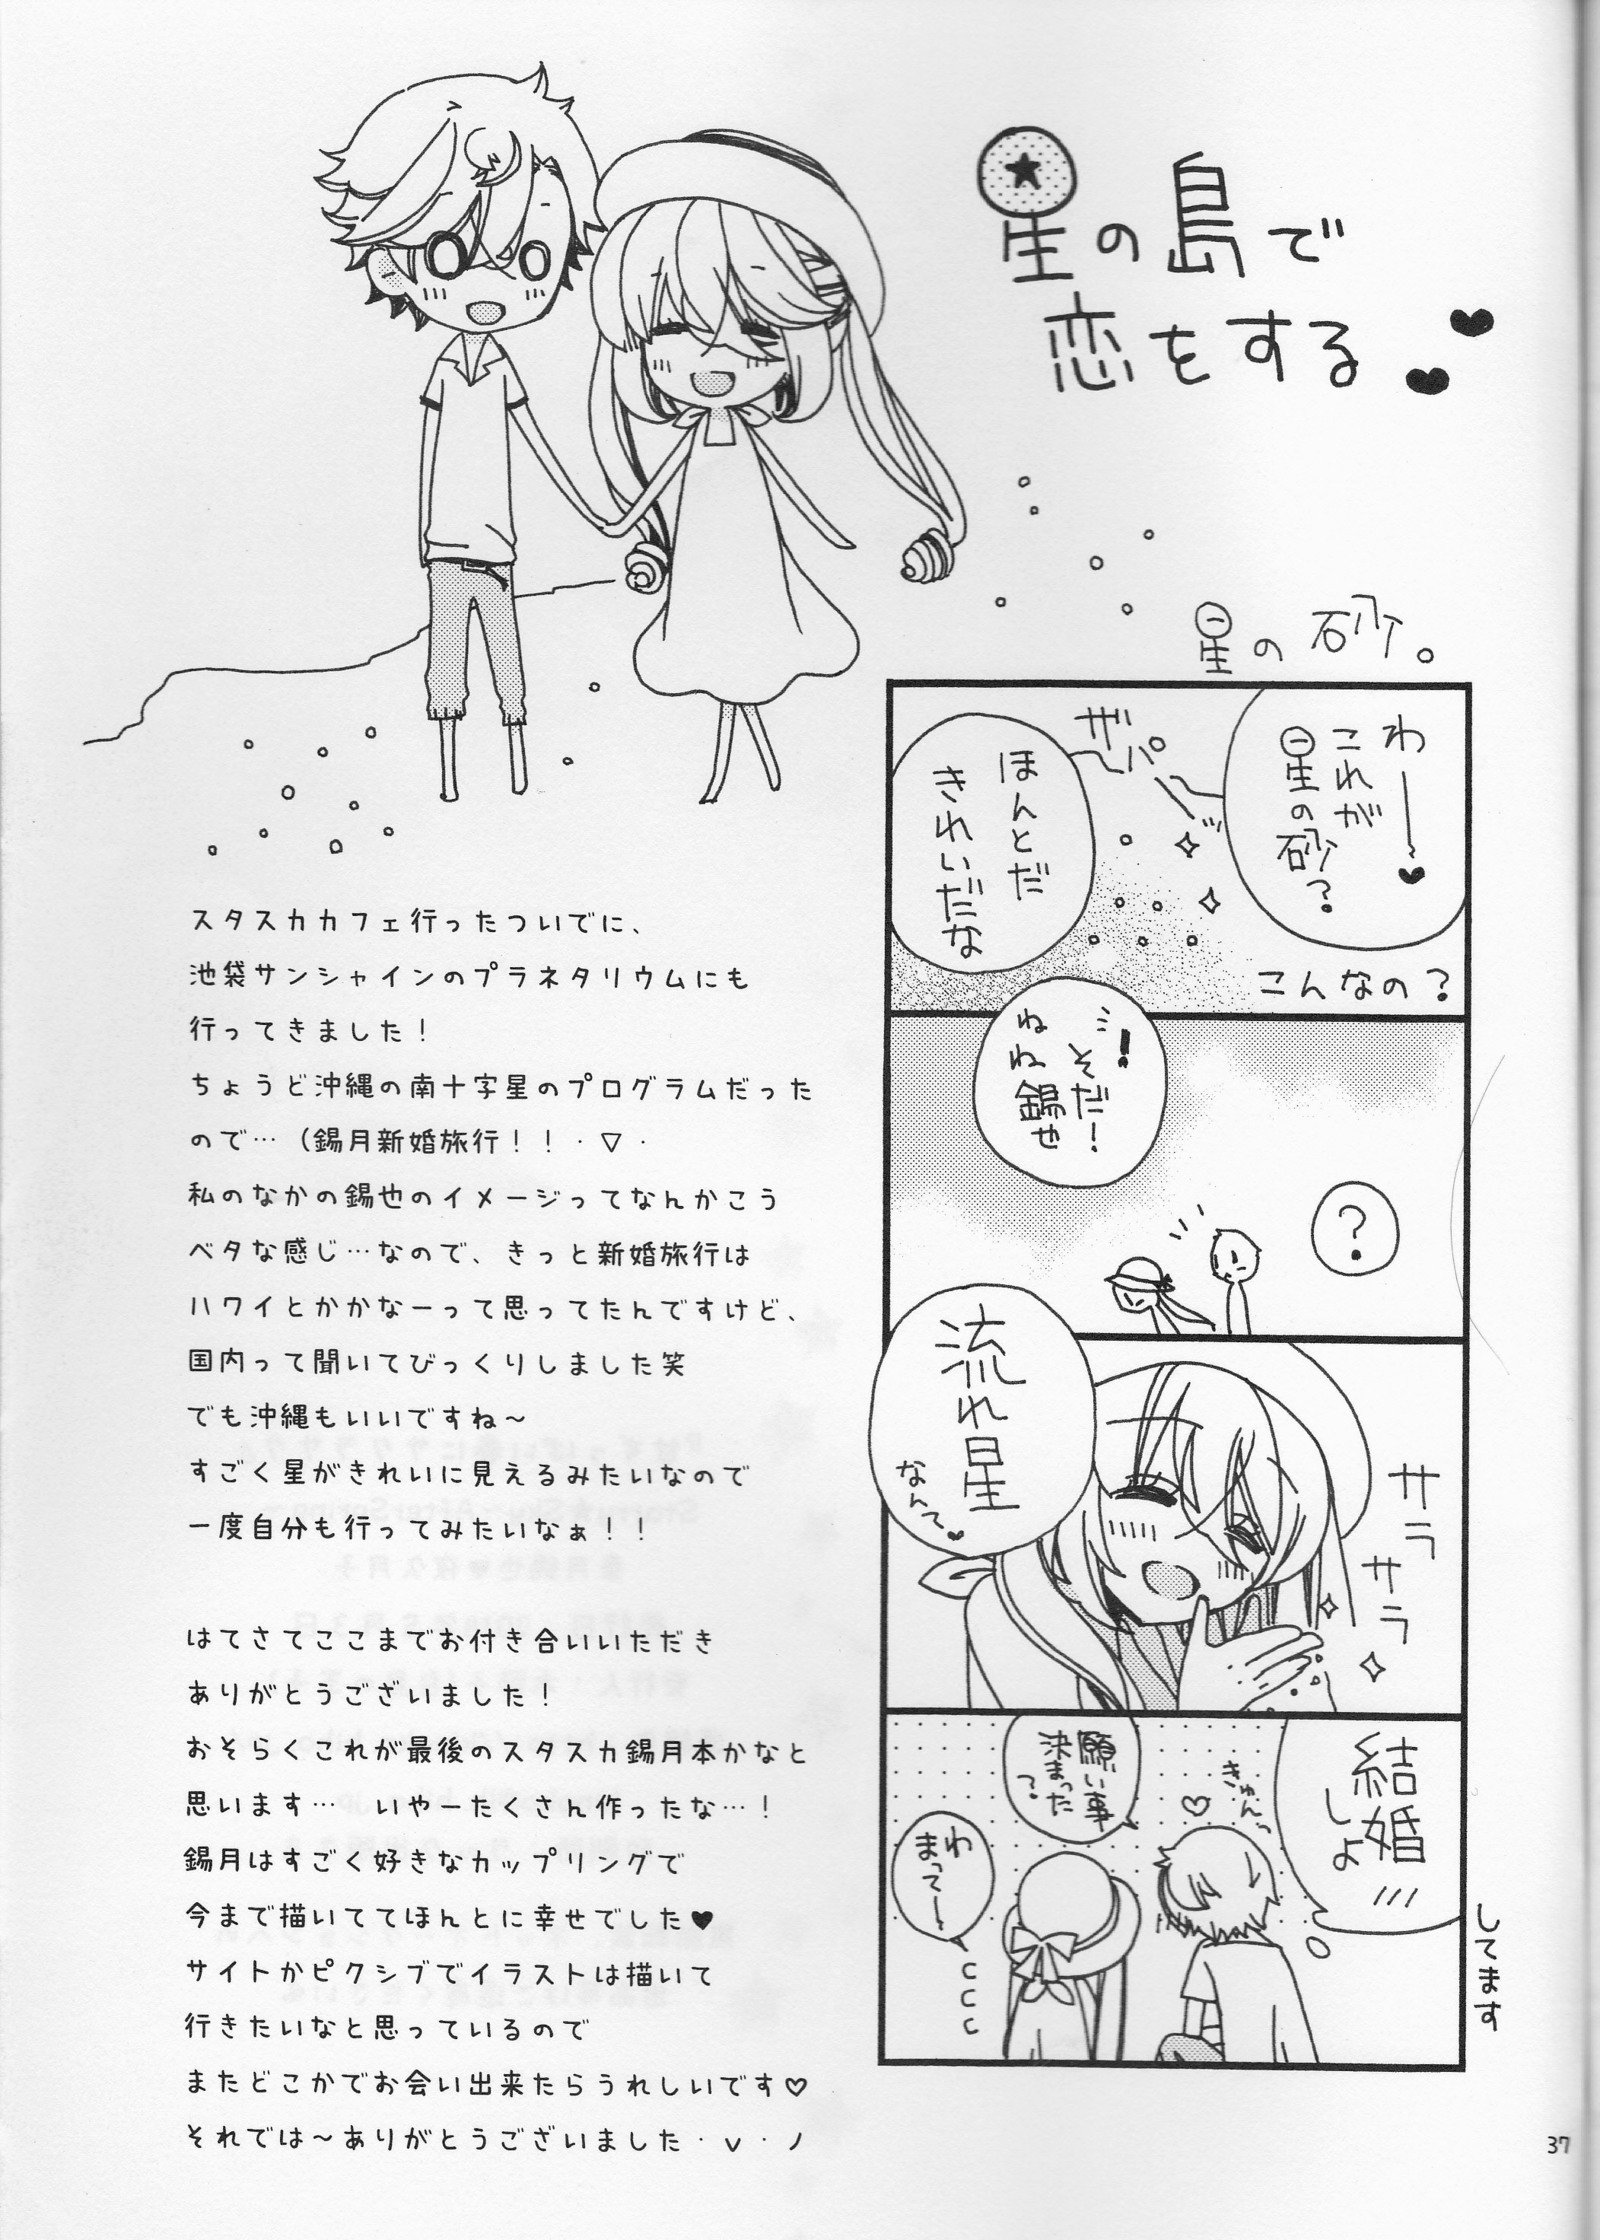 星の島で
恋をする
星の砂。
わーー♥
これが
星の砂?
ザパーッ
ほんとだ
きれいだな
こんなの?
!
そだ!
ねね錫也
?
流れ星
なんて♥
サラ
サラ
結婚
しよ
してます
きゅん
願い事
決まった
?
わ
まってー
スタスカカフェ行ったついでに、
池袋サンシャインのプラネタリウムにも
行ってきました!
ちょうど沖縄の南十字星のプログラムだった
ので…(錫月新婚旅行!!・▽・
私のなかの錫也のイメージってなんかこう
ベタな感じ…なので、きっと新婚旅行は
ハワイとかかなーって思ってたんですけど、
国内って聞いてびっくりしました笑
でも沖縄もいいですね~
すごく星がきれいに見えるみたいなので
一度自分も行ってみたいなぁ!!
はてさてここまでお付き合いいただき
ありがとうございました!
おそらくこれが最後のスタスカ錫月本かなと
思います… いやーたくさん作ったな…!
錫月はすごく好きなカップリングで
今まで描いててほんとに幸せでした♥
サイトかピクシブでイラストは描いて
行きたいなと思っているので
またどこかでお会い出来たらうれしいです♡
それでは~ありがとうございました・v・ノ
37